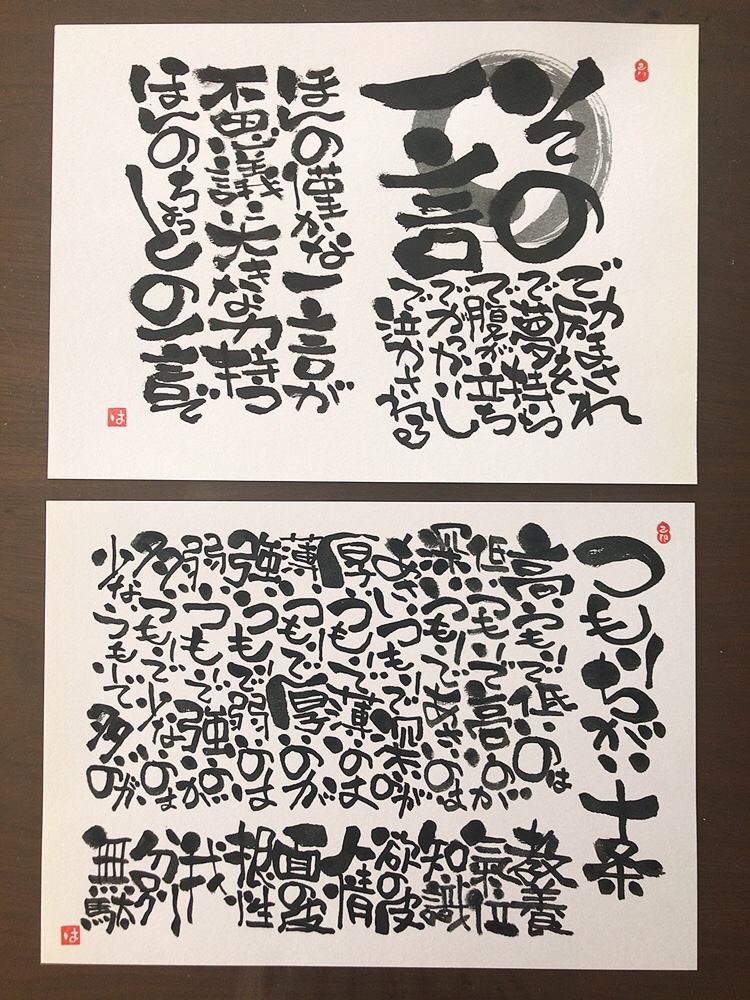 その一言
で励まされ
で夢を持ち
で腹が立ち
でがっかりし
で泣かされる
ほんの僅かな一言が
不思議に大きな力持つ
ほんのちょっとの一言で
は
つもりちがい十条
高いつもりで低いのは教養
低いつもりで高いのが氣位
深いつもりであさいのは知識
あさいつもりで深いのが欲の皮
厚いつもりで薄いのは人情
薄いつもりで厚いのが面の皮
強いつもりで弱いのは根性
弱いつもりで強いのが我
多いつもりで少ないのは分別
少ないつもりで多いのが無駄
は